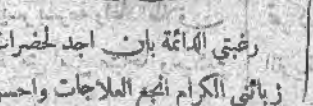 رغبتي الدائمة بان اجد لحضرات
زبائني الكرام انجع العلاجات واحسن